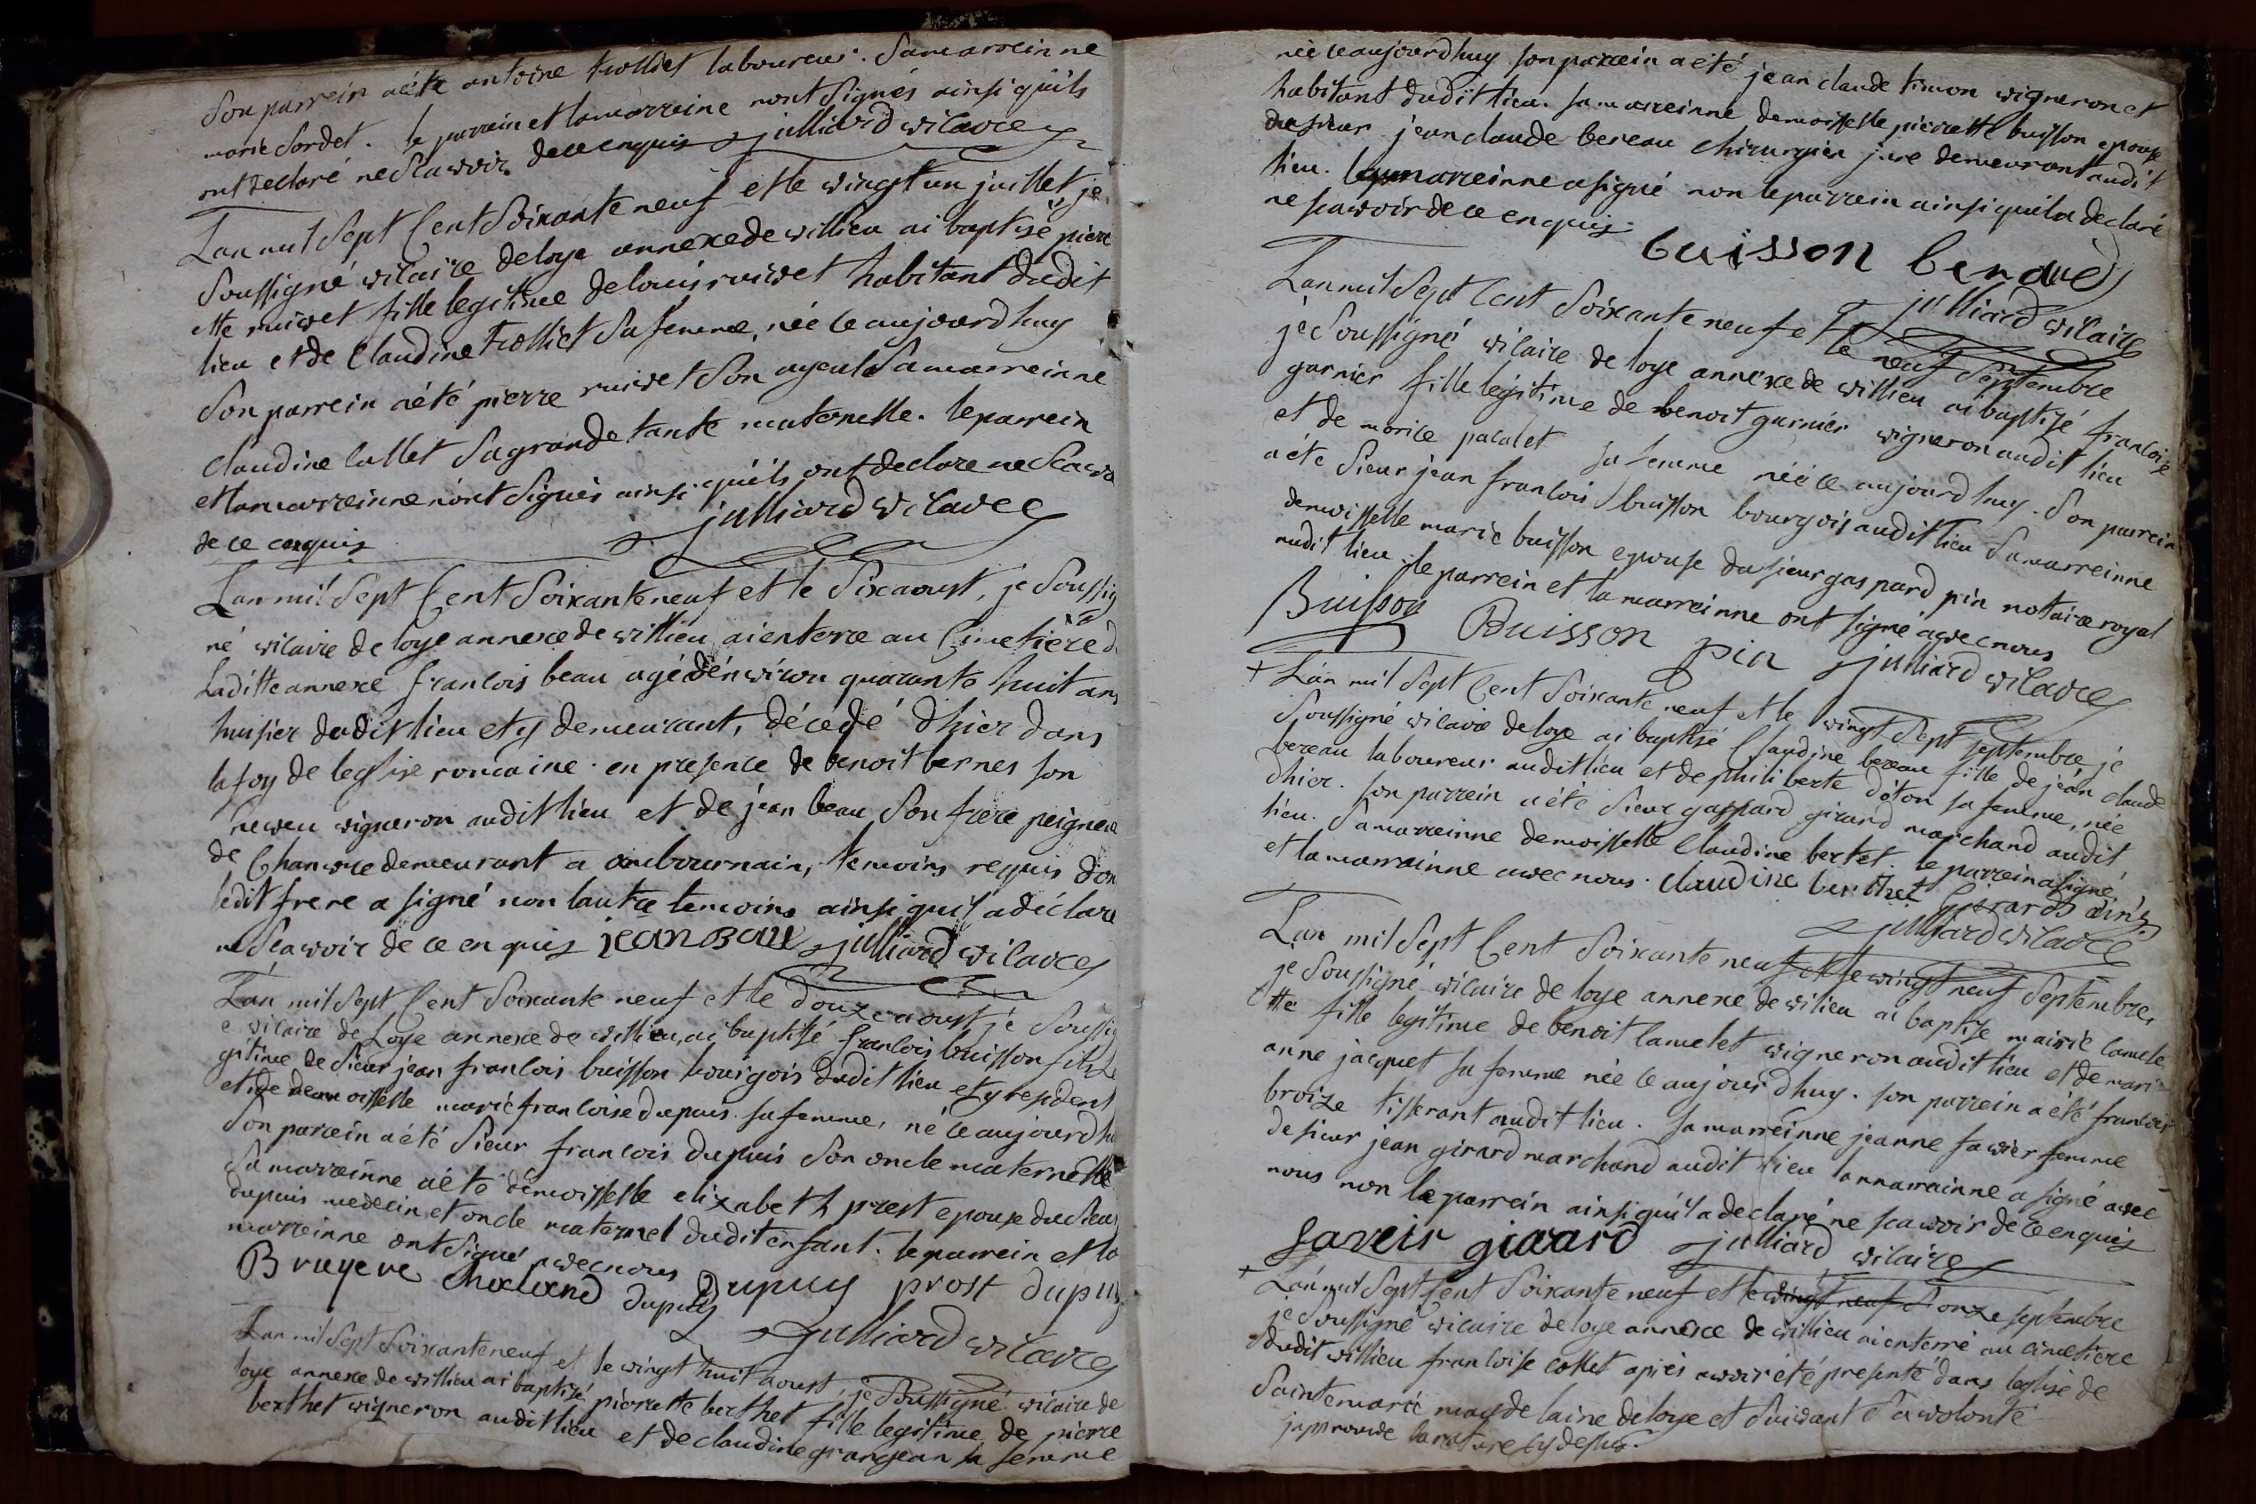 Son parrein aété antoine trolliet laboureur. Samarreinne
marie Sordet. le parrein et lamarreine nont Signés ainsi quils
ont declaré ne Scavoir de ce enquis julliard vicaire
Lan mil Sept Cent Soixante neuf et le vingt un juillet je
Soussigné vicaire de loye annexe de villieu ai baptisé pierre
tte ruivet fille legitime de louis ruivet habitant dudit
lieu et de Claudine trolliet Sa femme, née ce aujourdhuy
Son parrein aété pierre ruivet Son ayeul Samarreinne
Claudine Collet Sagrande tante maternelle. le parrein
et lamarreinne nont Signés ainsi quils ont declare ne Scavo
de ce enquis julliard vicaire
Lan mil Sept Cent Soixante neuf et le Six aoust, je Soussig
né vicaire de loye annexe de villieu ai enterre au Cimetière d
Laditte annexe francois beau agé dénviron quarante huit ans
huisier dudit lieu et y demeurant, décedé dhier dans
la foy de leglise romaine. en presence de benoit bernes son
neveu vigneron audit lieu et de jean beau Son frere peigneu
de Chanvre demeurant a ambournain, temoins requis don
ledit frere a signé non lautre temoins ainsi quil a déclaré
ne Scavoir de ce enquis jean Bau julliard vicaire
Lan mil Sept Cent Soixante neuf et le douze aoust je Soussig
é vicaire de Loye annexe de villieu, ai baptisé francois buisson fils Le
gitime de Sieur jean francois buisson bourgois dudit lieu et y resident
et de demoisselle marie francoise dupuis. sa femme, né ce aujourdhu
Son parrein aété Sieur francois dupuis Son oncle maternelle
Sa marreinne aété démoisselle elizabeth prost epouse du Sieur
dupuis medecin et oncle maternel dudit enfant. le parrein et la
marreinne ont Signé avec nous
Bruyere Dupuy Dupuy prost dupuy
julliard vicaire
Lan mil Sept Soixante neuf et le vingt huit aoust je Soussigné vicaire de
loye annexe de villieu ai baptisé pierrette berthet fille legitime de pierre
berthet vigneron audit lieu et de claudine grangean sa femme
née ce aujourdhuy son parrein a été jean claude timon vigneron et
habitant dudit lieu. sa marreinne demoisselle pierrette buisson epouse
du sieur jean claude bereau chirurgien jure demeurant audit
lieu. la marreinne a signé non le parrein ainsi quil a declaré
ne scavoir de ce enquis.
buisson beraud
julliard vicaire
Lan mil Sept Cent Soixante neuf et le neuf Septembre
je Soussigné vicaire de loye annexe de villieu ai baptizé francoise
garnier fille légitime de benoit garnier vigneron audit lieu
et de marie pacalet sa femme néé ce aujourdhuy. Son parrein
a été Sieur jean francois buisson bourgois audit lieu Samarreinne
demoisselle marie buisson epouse du sieur gaspard pin notaire royal
audit lieu. le parrein et la marreinne ont signé avec nous
Buisson Buisson pin julliard vicaire
+ Lan mil Sept Cent Soixante neuf et le vingt Sept Septembre je
Soussigné vicaire de loye ai baptisé Claudine bereau fille de jean claude
bereau laboureur audit lieu et de philiberte doton sa femme, née
dhier. son parrein a été Sieur gaspard girard marchand audit
lieu. Samarreinne demoisselle Claudine bertet. le parrein a signé
et lamarreinne avec nous. claudine berthet Girard ainé
julliard vicaire
Lan mil Sept Cent Soixante neuf et le vingt neuf Septembre,
je Soussigné vicaire de loye annexe de vilieu ai baptize mairie Camele
tte fille legitime de benoit Camelet vigneron audit lieu et de mari
anne jacquet sa femme née ce aujourdhuy. son parrein a été francois
broize tisserant audit lieu. sa marreinne jeanne savier femme
de sieur jean girard marchand audit lieu la marrainne a signé avec
nous non le parrein ainsi quil a declaré ne scavoir de ce enquis
saveir girard julliard vicaire
+ Lan mil Sept Cent Soixante neuf et le vingt neuf onze septembre
je Soussigné vicaire de loye annexe de villieu ai enterré au cimetiere
dudit villieu francoise collet après avoir été presenté dans leglise de
Sainte marie magdelaine de loye et Suivant Sa volonté
japprouve la rature cy dessus.